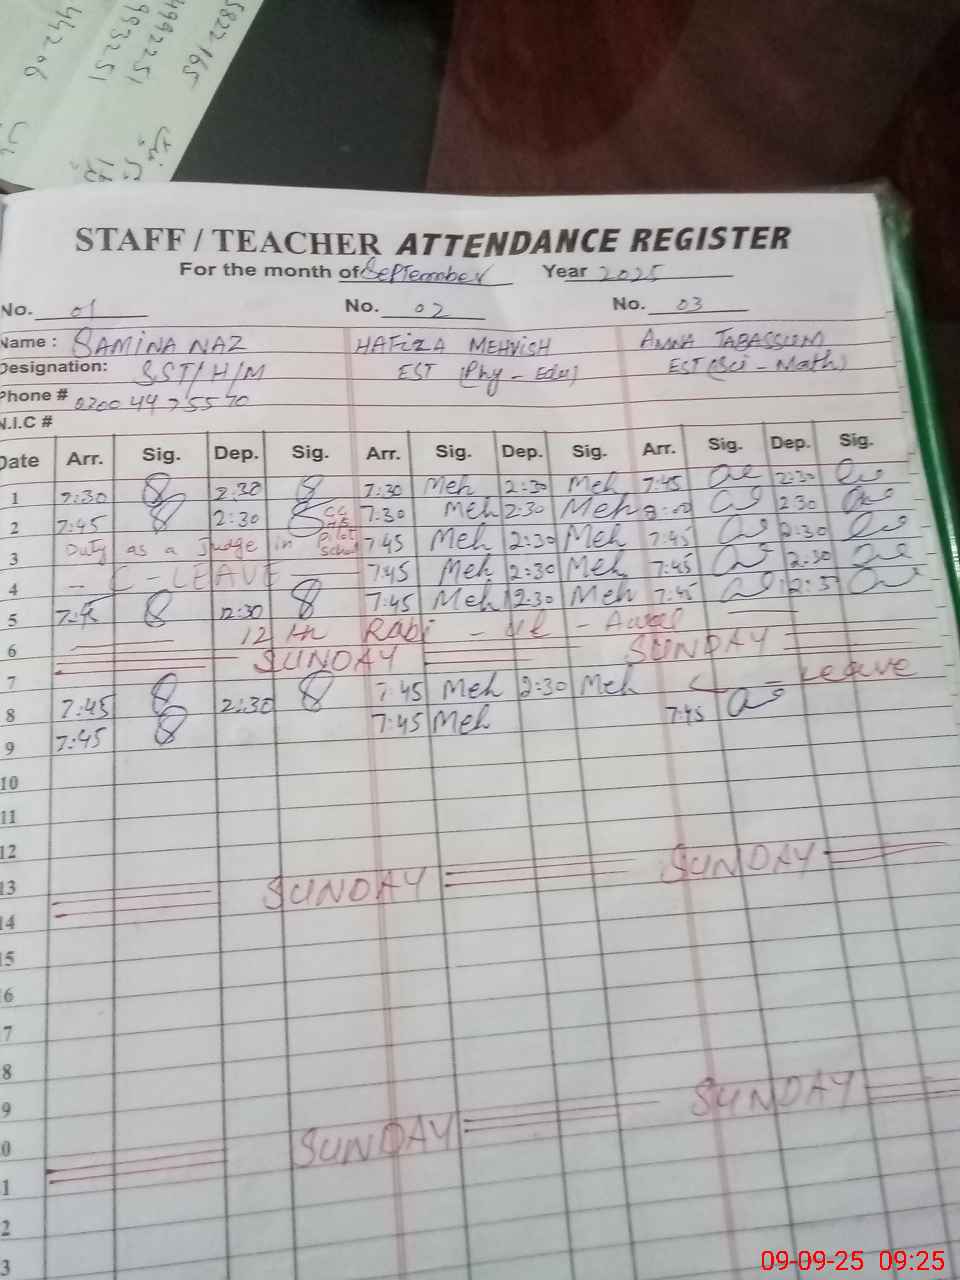 5822165
4992251
993251
44206
STAFF / TEACHER ATTENDANCE REGISTER
For the month of September Year 2025
No. 01 No. 02 No. 03
Name : SAMINA NAZ HAFIZA MEHVISH AMNA TABASSUM
Designation: SST/H/M EST (Phy - Edu) EST (Sci - Math)
Phone #
N.I.C #
Date Arr. Sig. Dep. Sig. Arr. Sig. Dep. Sig. Arr. Sig. Dep. Sig.
1 7:30 2:30 7:30 Meh 2:30 Meh 7:45 2:30
2 7:45 2:30 7:30 Meh 2:30 Meh 8:00 2:30
3 Duty as a Judge in Pilot School 7:45 Meh 2:30 Meh 7:45 2:30
4 C - LEAVE 7:45 Meh 2:30 Meh 7:45 2:30
5 7:45 12:30 7:45 Meh 12:30 Meh 7:45 12:3
6 12 th Rabi - Ul - Awal
7 SUNDAY SUNDAY
8 7:45 2:30 7:45 Meh 2:30 Meh C - Leave
9 7:45 7:45 Meh 7:45
10
11
12
13
14 SUNDAY SUNDAY
5
6
7
8
9
0
1 SUNDAY SUNDAY
2
3
09-09-25 09:25